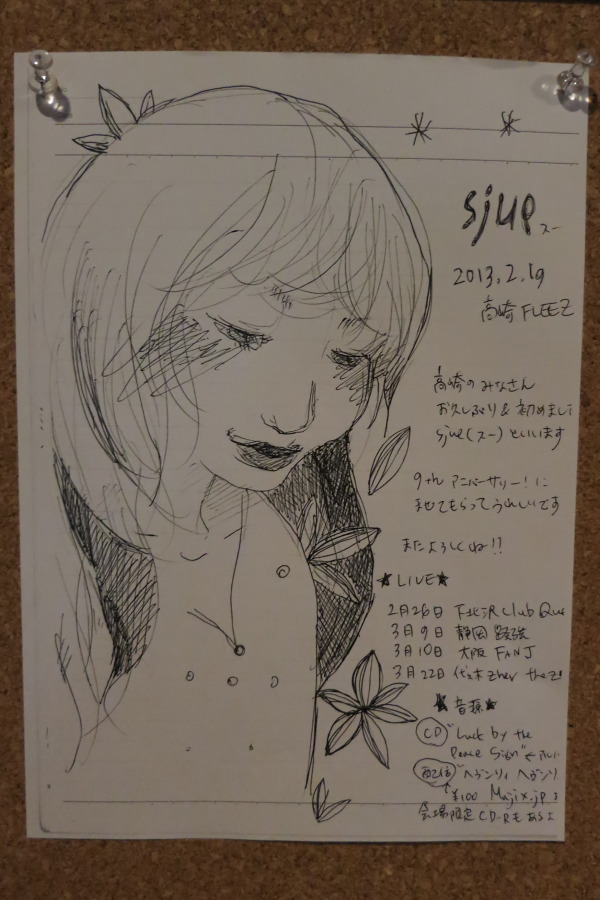 sjue
スー
2013.2.19
高崎 FLEEZ
高崎のみなさん
お久しぶり&初めまして
sjue(スー)といいます
9th アニバーサリー!に
まぜてもらってうれしいです
またよろしくね!!
★LIVE★
2月26日 下北沢 Club Que
3月9日 静岡 騒弦
3月10日 大阪 FANJ
3月22日 代々木 Zher the Zoo
★音源★
CD "Luck by the
Peace Sign" ←
配信 "ヘヴンリィ ヘヴンリ
↑¥100 Majix.jp
会場限定 CD-Rもあるよ